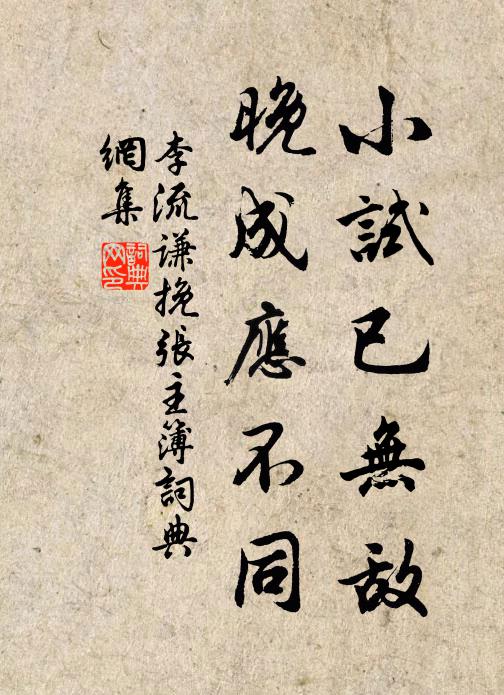 小試已無敵
晚成應不同
李流谦挽張主簿詞典
網集
詞典
网印